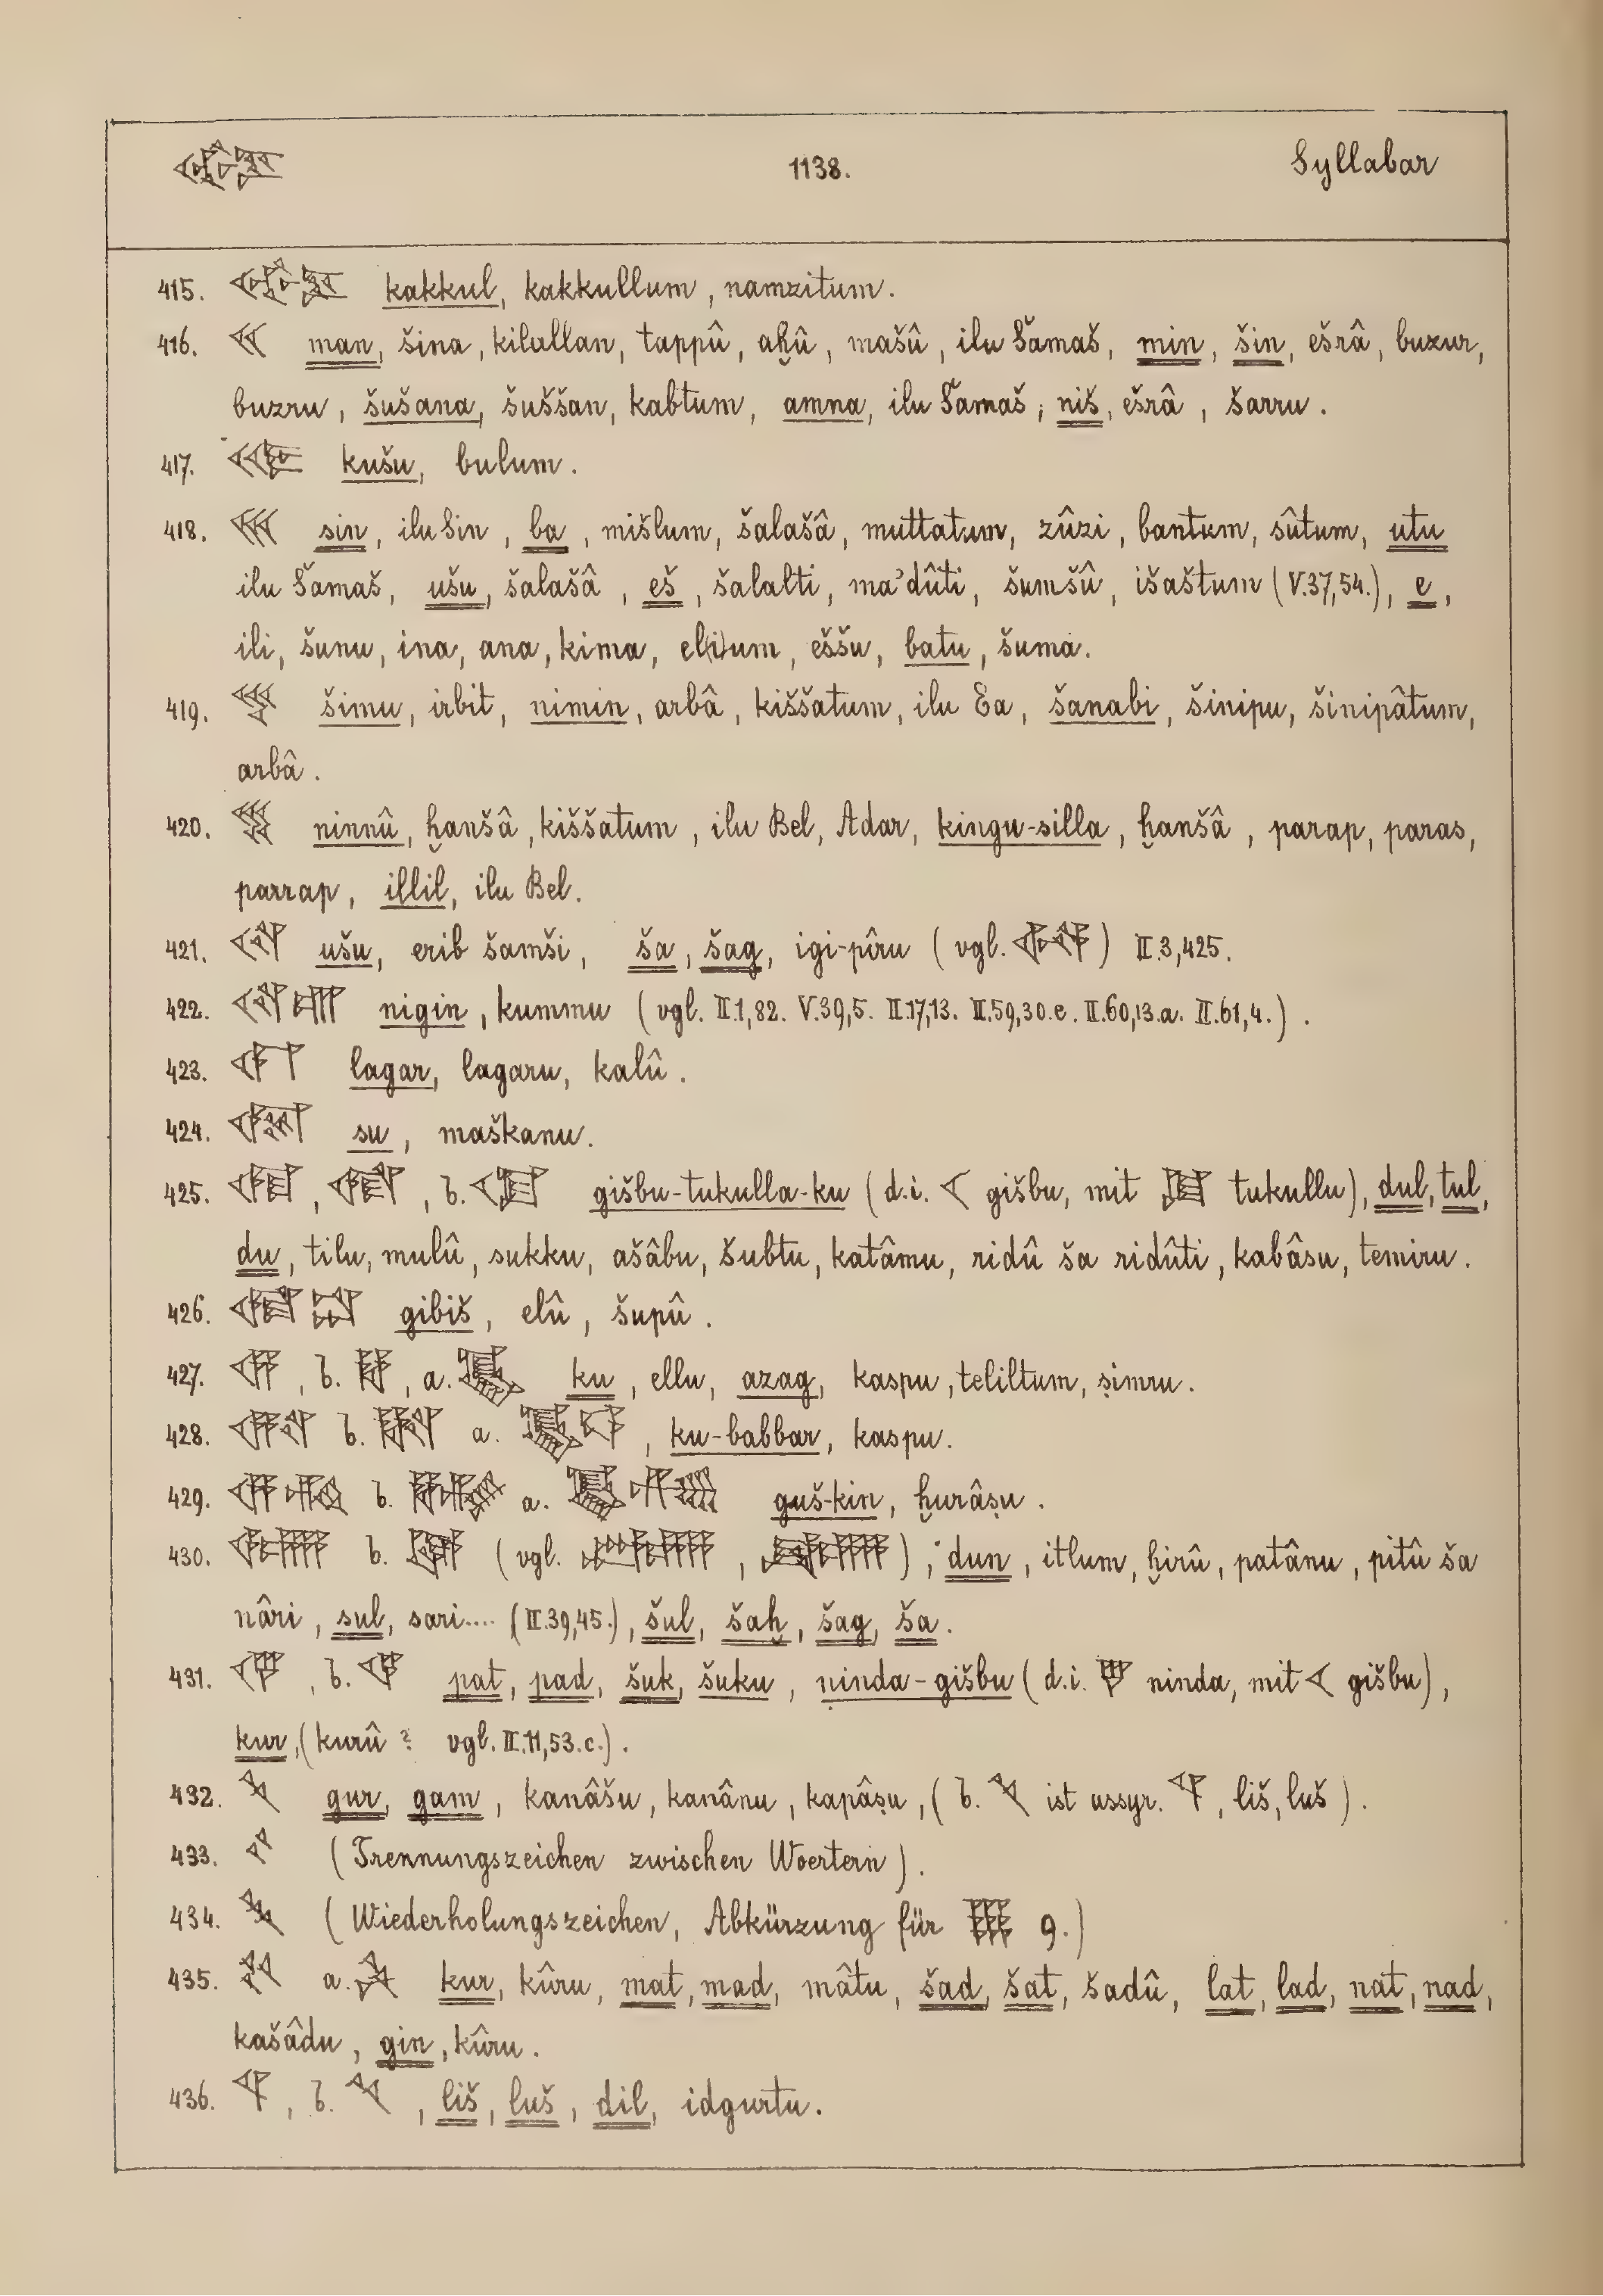 1138. Syllabar
415. kakkul, kakkullum, namzitum.
416. 𒌋𒌋 man, šina, kilallan, tappû, aḫû, mašû, ilu Šamaš, min, šin, ešrâ, buzur,
buzru, šušana, šuššan, kabtum, amna, ilu Šamaš; niš, ešrâ, šarru.
417. kušu, bulum.
418. 𒌍 sin, ilu Sin, ba, mišlum, šalašâ, muttatum, zûzi, bantum, sûtum, utu
ilu Šamaš, ušu, šalašâ, eš, šalalti, ma'dûti, šumšû, išaštum (V.37,54.), e,
ili, šunu, ina, ana, kima, el(i)um, eššu, batu, šuma.
419. šimu, irbit, nimin, arbâ, kiššatum, ilu Ea, šanabi, šinipu, šinipâtum,
arbâ.
420. ninnû, ḫanšâ, kiššatum, ilu Bel, Adar, kingu-silla, ḫanšâ, parap, paras,
parrap, illil, ilu Bel.
421. ušu, erib šamši, ša, šag, igi-pîru (vgl. ) II.3,425.
422. nigin, kummu (vgl. II.1,82. V.39,5. II.17,13. II.59,30.e. II.60,13.a. II.61,4.).
423. lagar, lagaru, kalû.
424. su, maškanu.
425. , , b. gišbu-tukulla-ku (d.i. 𒌋 gišbu, mit tukullu), dul, tul,
du, tilu, mulû, sukku, ašâbu, šubtu, katâmu, ridû ša ridûti, kabâsu, temiru.
426. gibiš, elû, šupû.
427. , b. , a. ku, ellu, azag, kaspu, teliltum, ṣimru.
428. b. a. , ku-babbar, kaspu.
429. b. a. guš-kin, ḫurâṣu.
430. b. (vgl. , ), dun, itlum, ḫirû, patânu, pitû ša
nâri, sul, sari.... (II.39,45.), šul, šaḫ, šag, ša.
431. , b. pat, pad, šuk, šuku, ninda-gišbu (d.i. ninda, mit 𒌋 gišbu),
kur, (kurû? vgl. II.11,53.c.).
432. gur, gam, kanâšu, kanânu, kapâṣu, (b. ist assyr. , liš, luš).
433. (Trennungszeichen zwischen Woertern).
434. (Wiederholungszeichen, Abkürzung für 9.)
435. 𒆳 a. kur, kûru, mat, mad, mâtu, šad, šat, šadû, lat, lad, nat, nad,
kašâdu, gin, kûru.
436. , b. , liš, luš, dil, idgurtu.